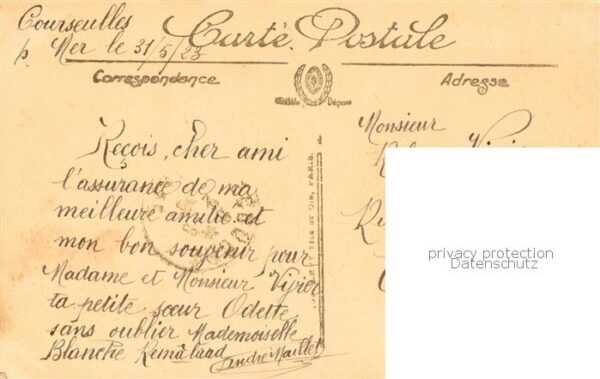 Courseulles
s/ Mer le 31/5/23
Carte Postale
Correspondance
Adresse
Modèle Déposé
Monsieur
Reçois, cher ami
l'assurance de ma
meilleure amitié et
mon bon souvenir pour
Madame et Monsieur Vivier
ta petite sœur Odette
sans oublier Mademoiselle
Blanche
André Maillet
privacy protection
Datenschutz